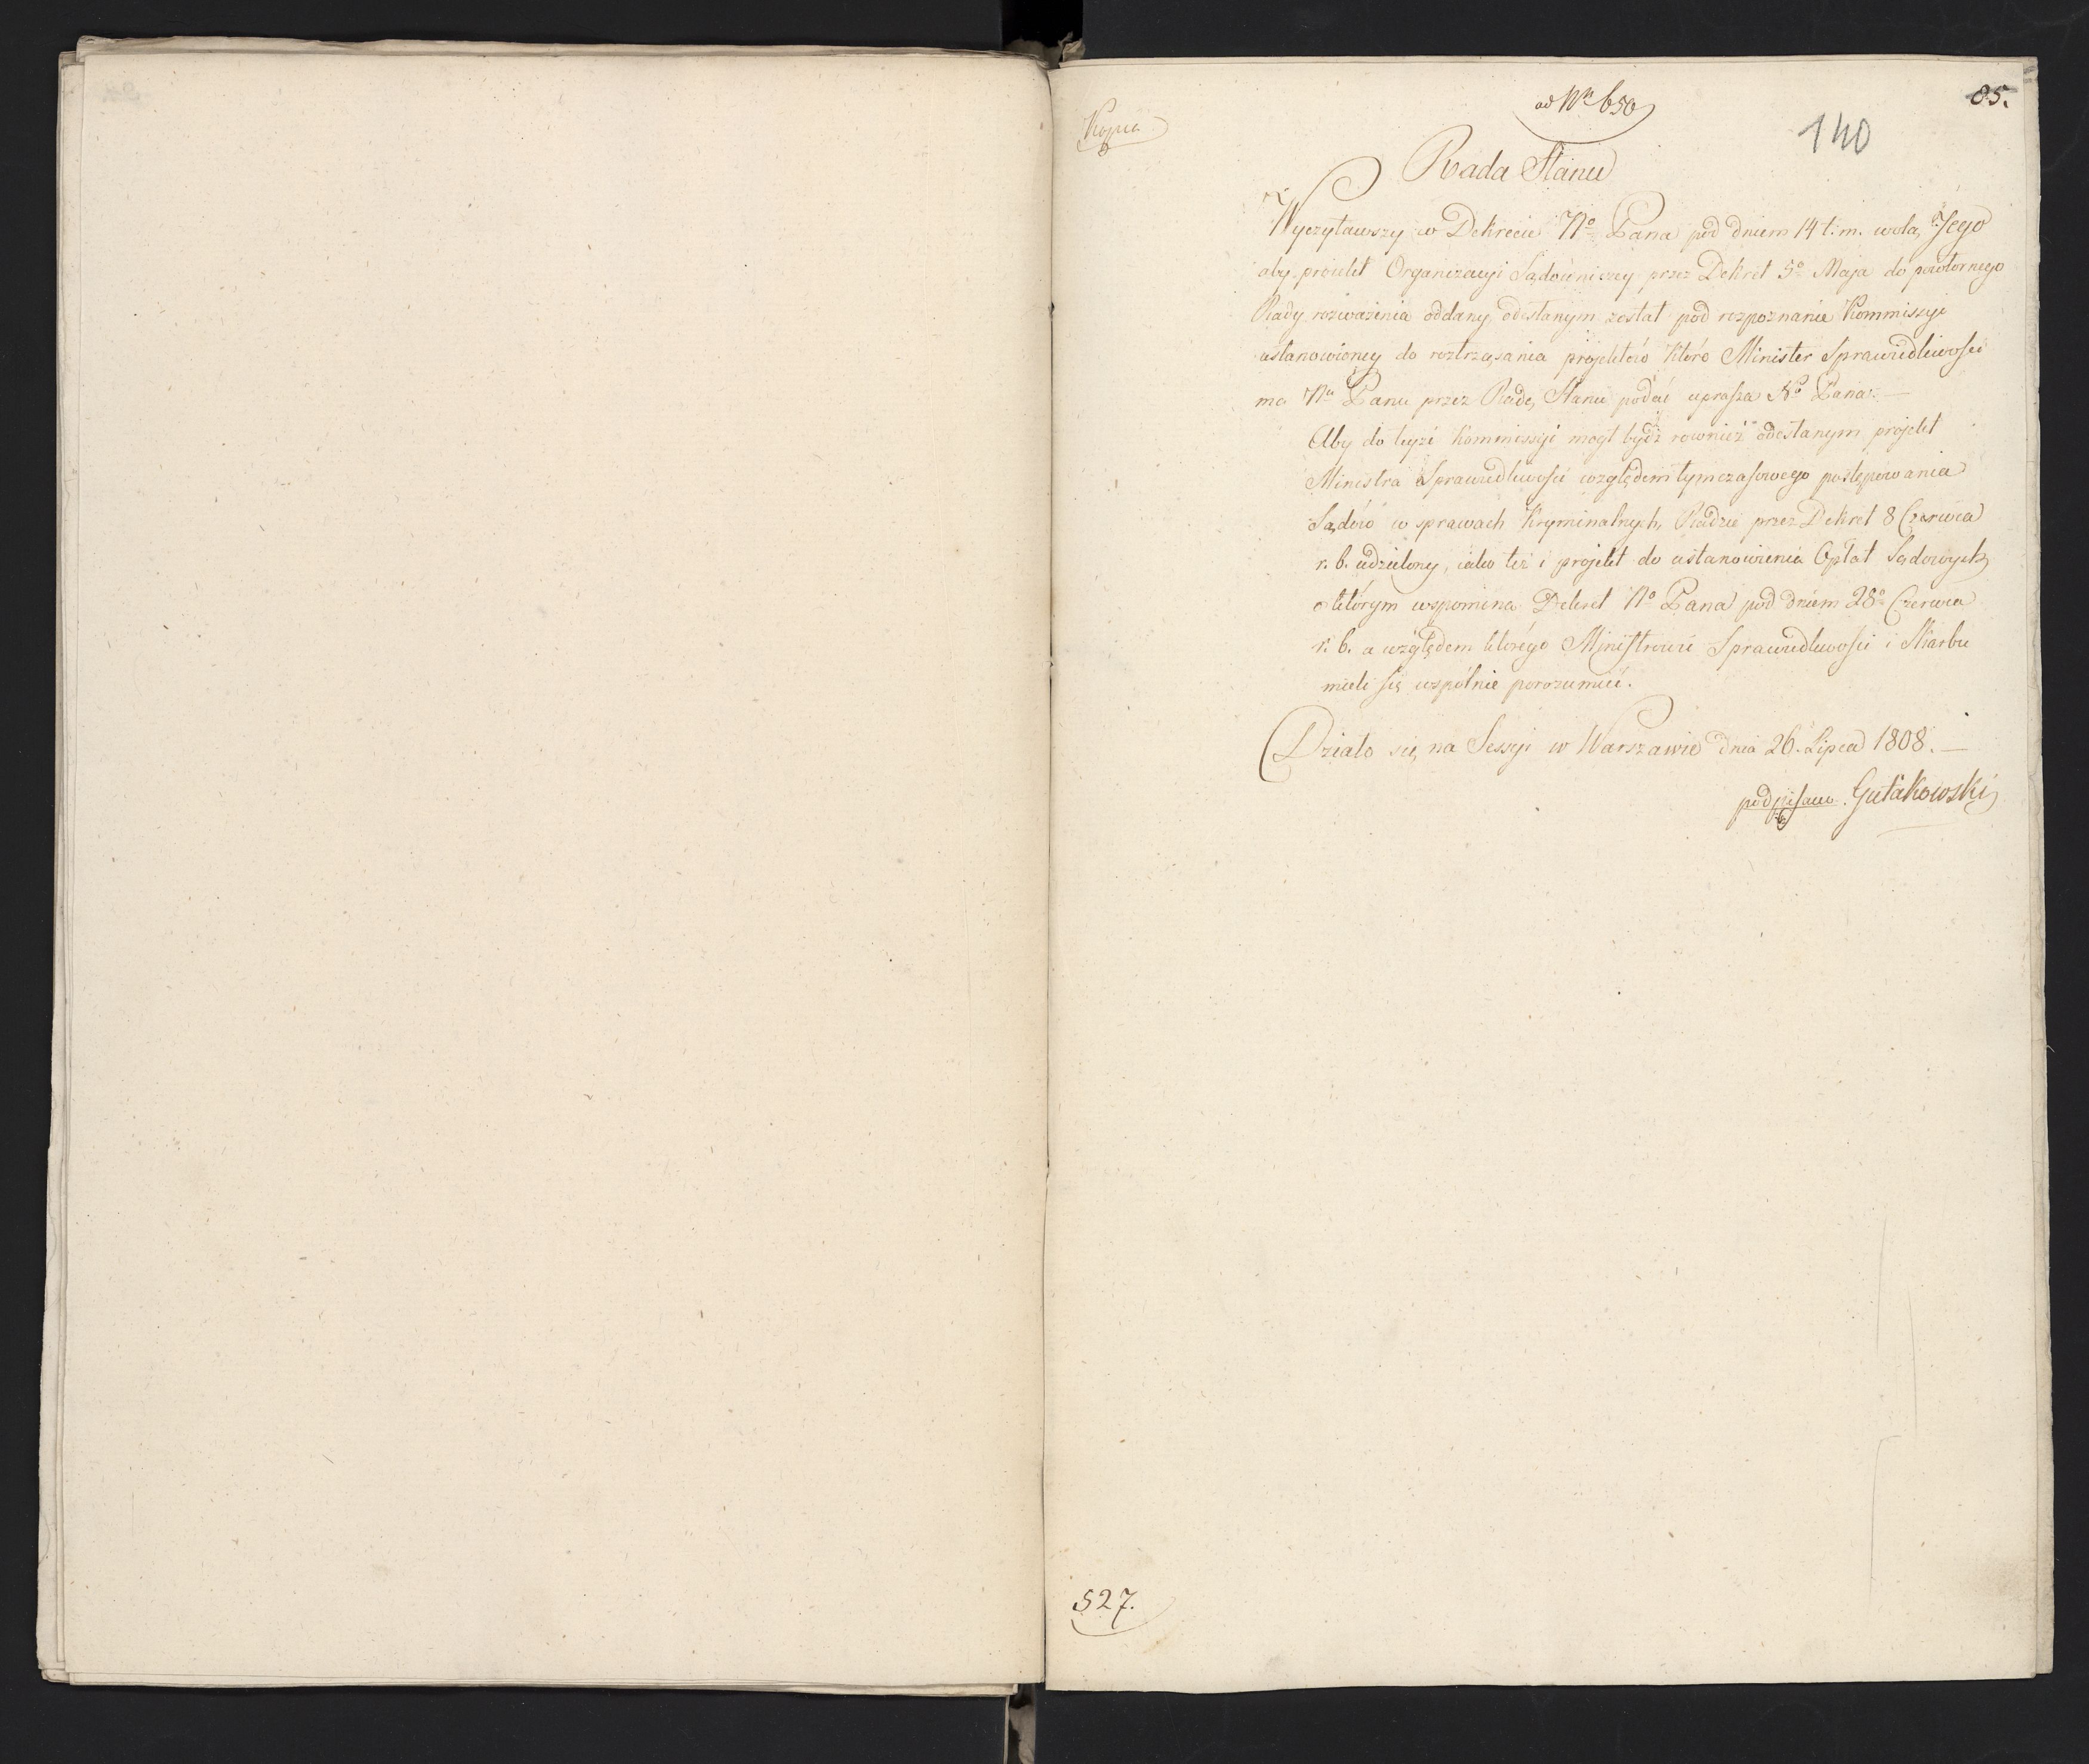 ad Nr. 650
85.
140
Kopia
Rada Stanu
Wyczytawszy w Dekrecie No Pana pod dniem 14 t. m. wolą Jego
aby proiekt Organizacyi Sądowniczey przez Dekret 5o Maja do powtornego
Rady rozważenia oddany, odesłanym został pod rozpoznanie Kommissyi
ustanowioney do roztrząsania projektów które Minister Sprawiedliwości
ma Nu Panu przez Radę Stanu podać uprasza No Pana. —
Aby do teyże Kommissyi mogł bydź rownież odesłanym projekt
Ministra Sprawiedliwości względem tymczasowego postępowania
Sądów w sprawach Kryminalnych, Radzie przez Dekret 8 Czerwca
r. b. udzielony, iako też i projekt do ustanowienia Opłat Sądowych
o którym wspomina Dekret No Pana pod dniem 28o Czerwca
r. b. a względem którégo Ministrowie Sprawiedliwości i Skarbu
mieli się wspólnie porozumieć.
Działo się na Sessyi w Warszawie dnia 26. Lipca 1808. —
podpisano. Gutakowski
527.